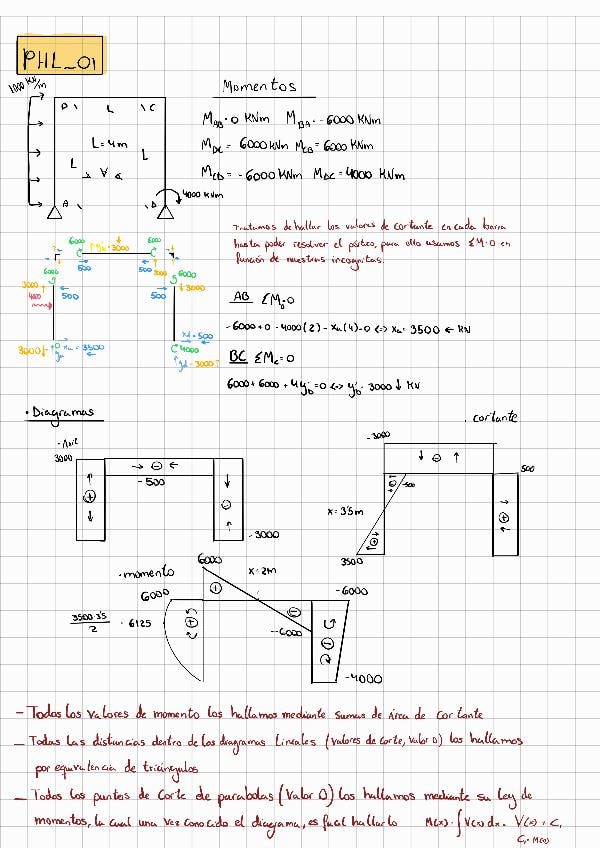 PHL_01
1000 KN/m
D L C
L=4m
L L
A D
4000 KNm
Momentos
M_AB = 0 KNm M_BA = -6000 KNm
M_BC = 6000 KNm M_CB = 6000 KNm
M_CD = -6000 KNm M_DC = 4000 KNm
Tratamos de hallar los valores de cortante en cada barra
hasta poder resolver el pórtico, para ello usamos ΣM=0 en
función de nuestras incognitas.
6000 3000 6000
500 500
6000 3000 6000
3000 500 500 3000
4000
3000 = 3500 = 500
4000
3000
AB ΣM=0
-6000+0-4000(2)-x_a(4)=0 <=> x_a = 3500 ← KN
BC ΣM_c=0
6000+6000+4y_b=0 <=> y_b = 3000 ↓ KN
• Diagramas
- Axil
3000
-500
-3000
. cortante
-3000
500
-500
x=3'5m
3500
• momento
6000
x=2m
6000
-6000
3500·3'5/2 = 6125
-6000
-4000
- Todos los valores de momento los hallamos mediante sumas de área de cortante
- Todas las distancias dentro de los diagramas lineales (valores de corte, valor 0) los hallamos
por equivalencia de triángulos
- Todos los puntos de corte de parabolas (valor 0) los hallamos mediante su ley de
momentos, la cual una vez conocido el diagrama, es facil hallarlo M(x)=∫V(x)dx. V(x) + C₁
C₁=M(0)